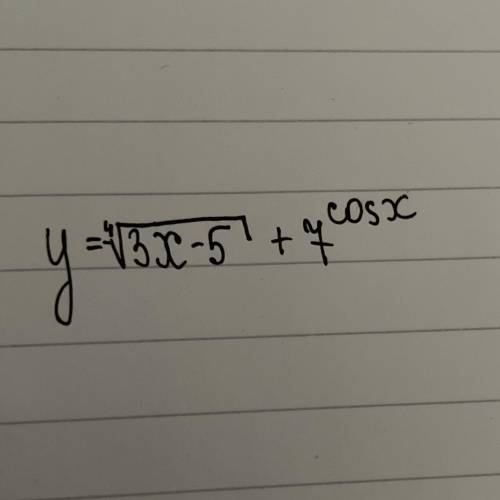 y = ∜(3x - 5) + 7^cosx